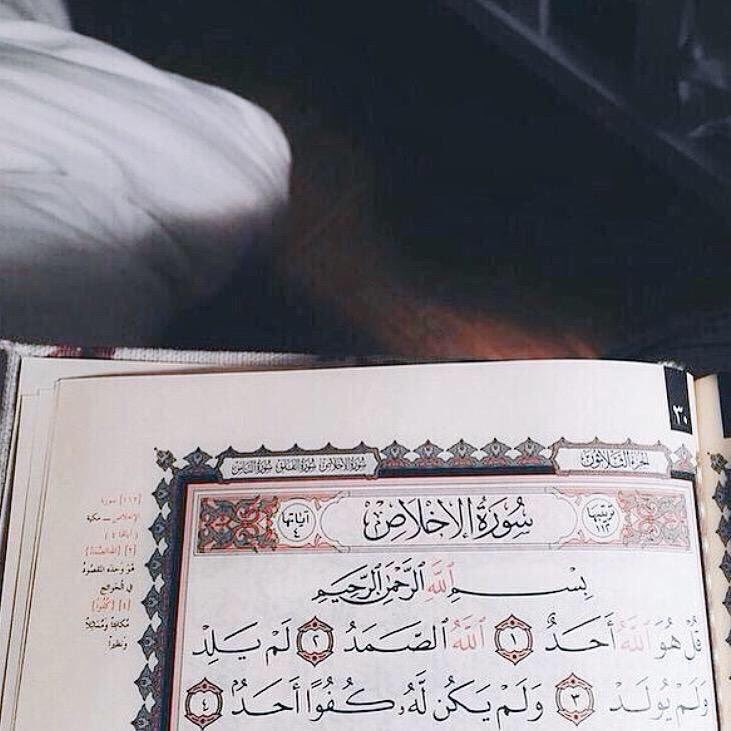 ٣٠
الجزء الثلاثون
سورة الإخلاص سورة الفلق سورة الناس
ترتيبها ١١٢
سُورَةُ الإِخْلَاصِ
آياتها ٤
بِسْمِ ٱللَّهِ ٱلرَّحْمَٰنِ ٱلرَّحِيمِ
قُلْ هُوَ ٱللَّهُ أَحَدٌ ١ ٱللَّهُ ٱلصَّمَدُ ٢ لَمْ يَلِدْ
وَلَمْ يُولَدْ ٣ وَلَمْ يَكُن لَّهُۥ كُفُوًا أَحَدٌۢ ٤
[١١٢] سورة
الإخلاص - مكية
(آياتها ٤)
[٢] {اللهُ الصَّمَدُ}
هُوَ وَحْدَهُ المَقْصُودُ
فِي الحَوَائِجِ
[٤] {كُفُوًا}
مُكَافِئًا وَمُمَاثِلًا
وَنَظِيرًا